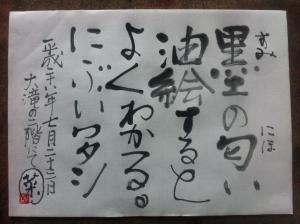 墨の匂い
すみ
にほ
油絵すると
よくわかる。
にぶいワタシ
平成二十六年七月二十二日
大滝の二階にて